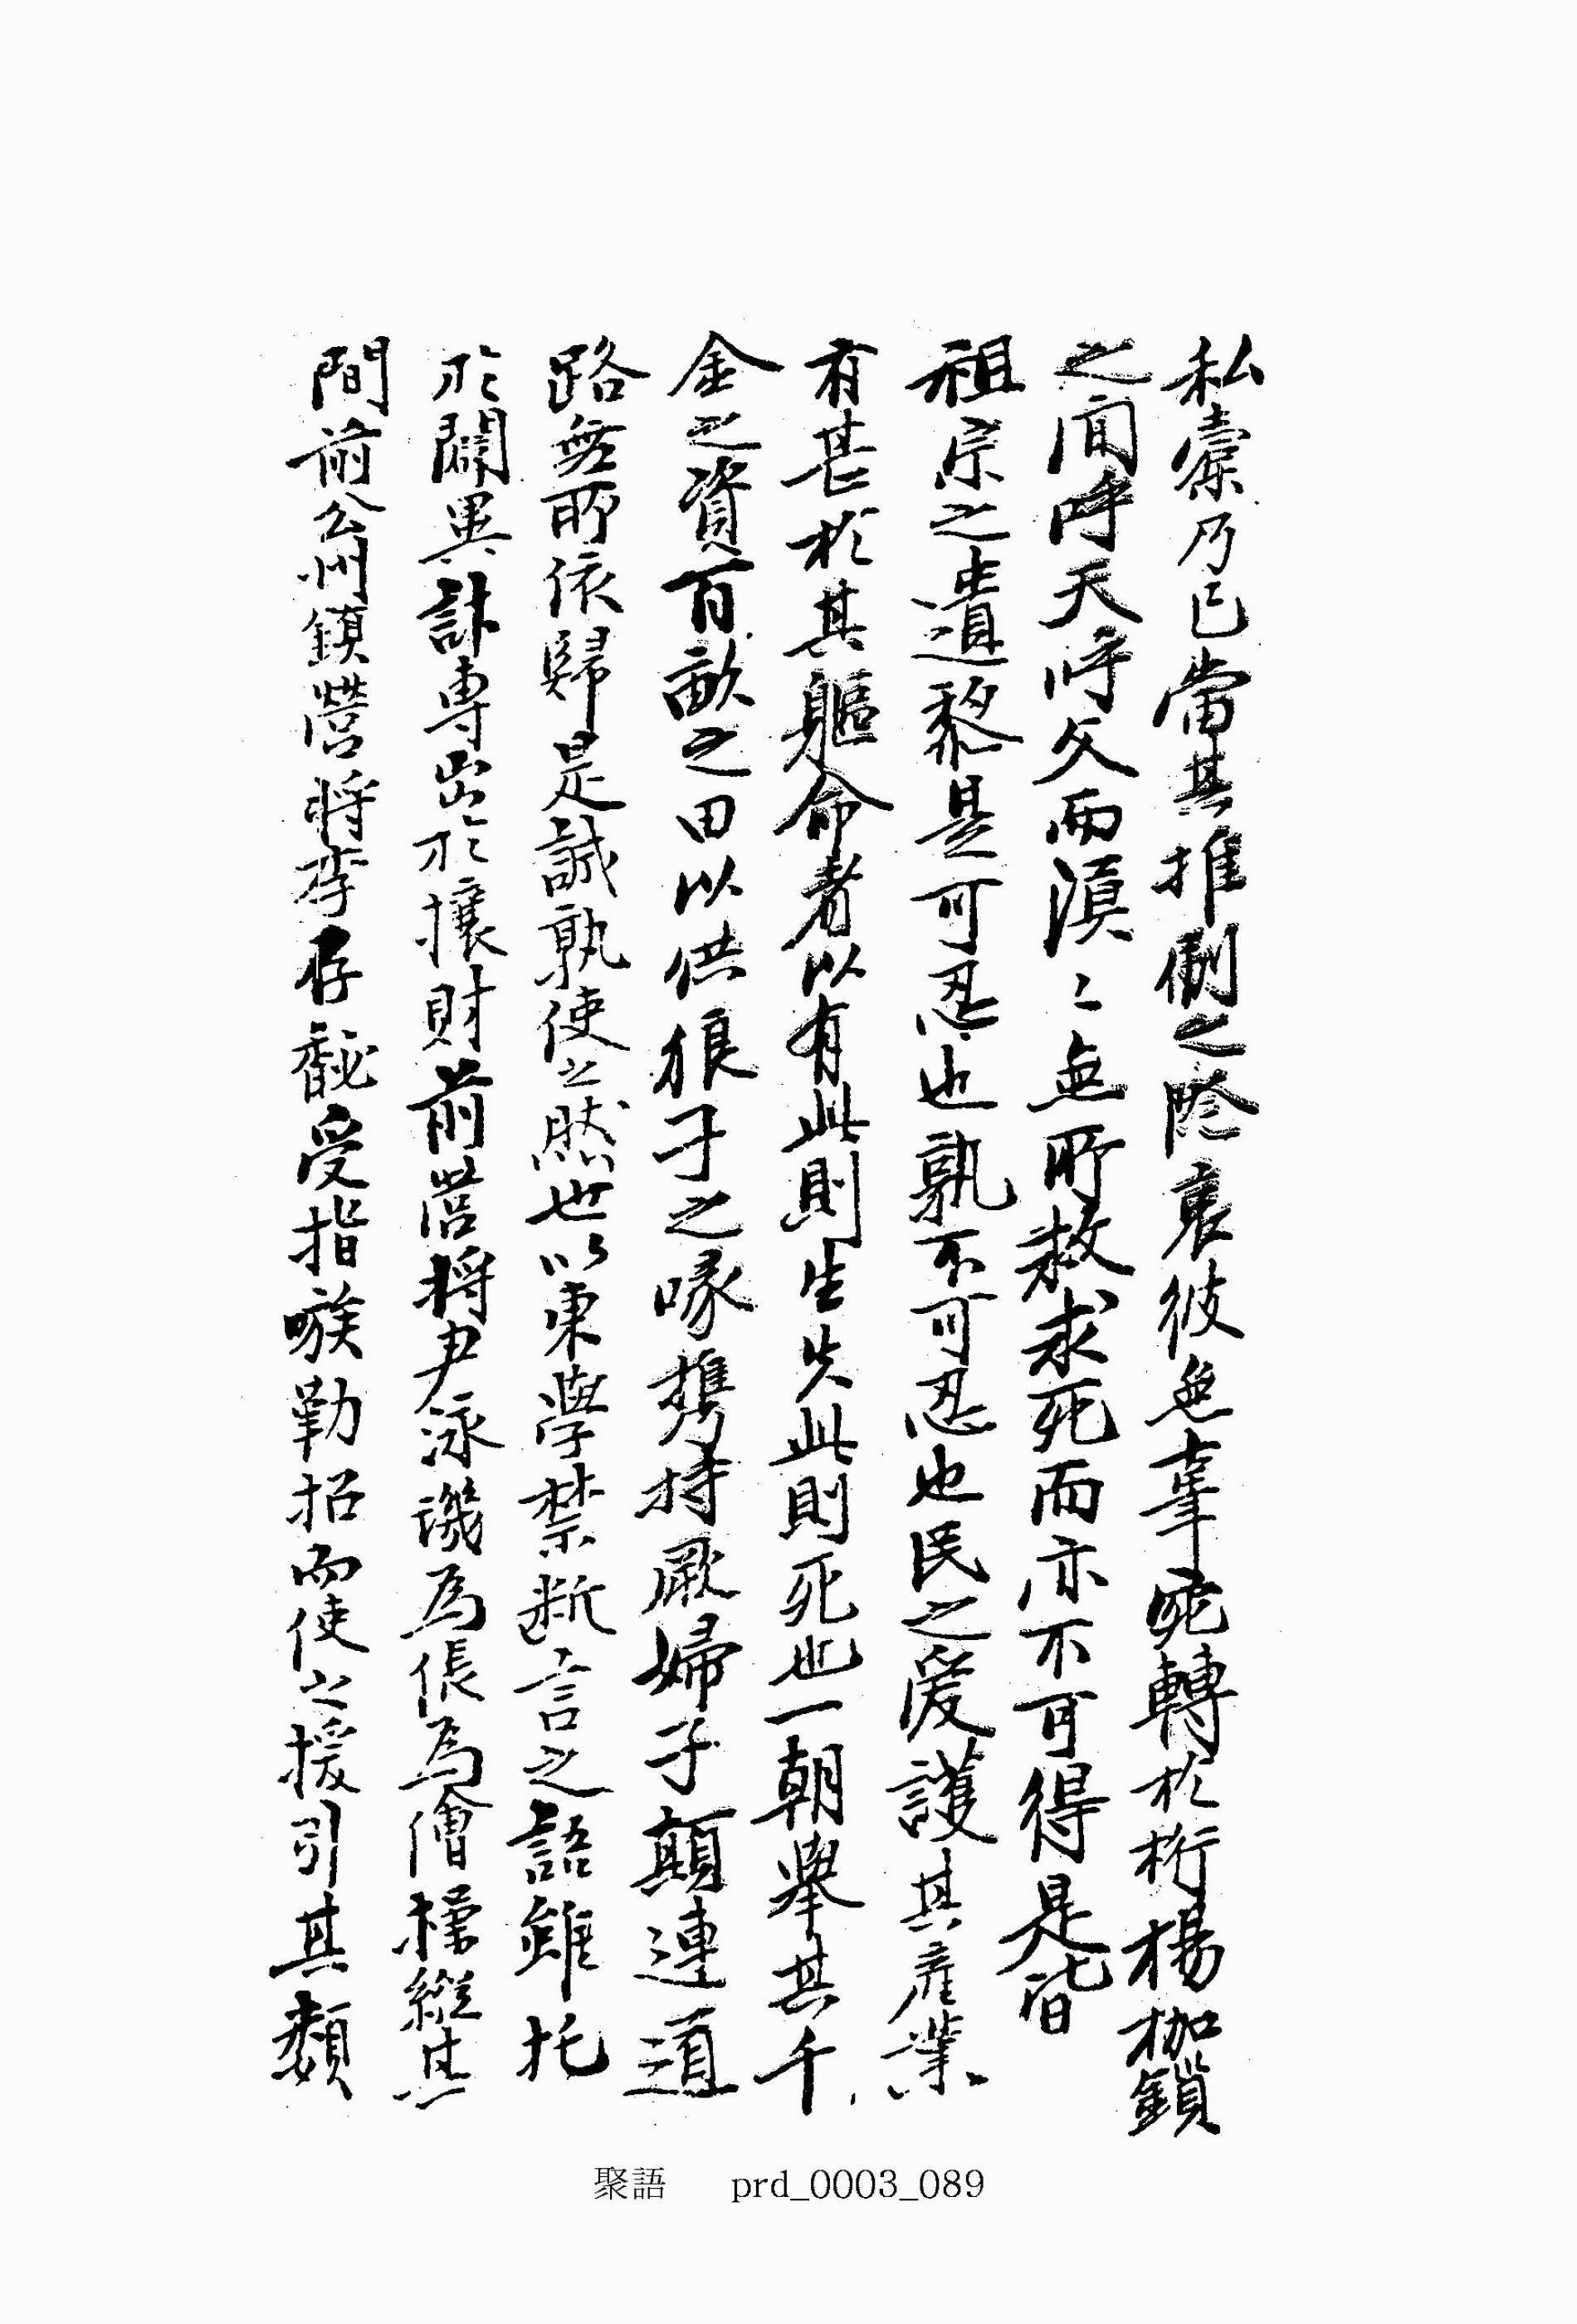 私槖乃已當其推剧之際哀彼無辜宛轉於桁楊枷鎖
之間呼天呼父而漠〻無所救求死而亦不可得是皆
祖宗之遺黎是可忍也孰不可忍也民之爰護其產業
有甚於其軀命者以有此則生失此則死也一朝擧其千
金之資百畝之田以供狼子之喙携持厥婦子顚連道
路無所依歸是誠孰使之然也以東學禁斷言之語雖托
於闢異計專出於攘財前營將尹泳璣爲倀爲儈操縱其
間前公州鎭營將李存馝受指嗾勒招而使之援引其類
聚語 prd_0003_089